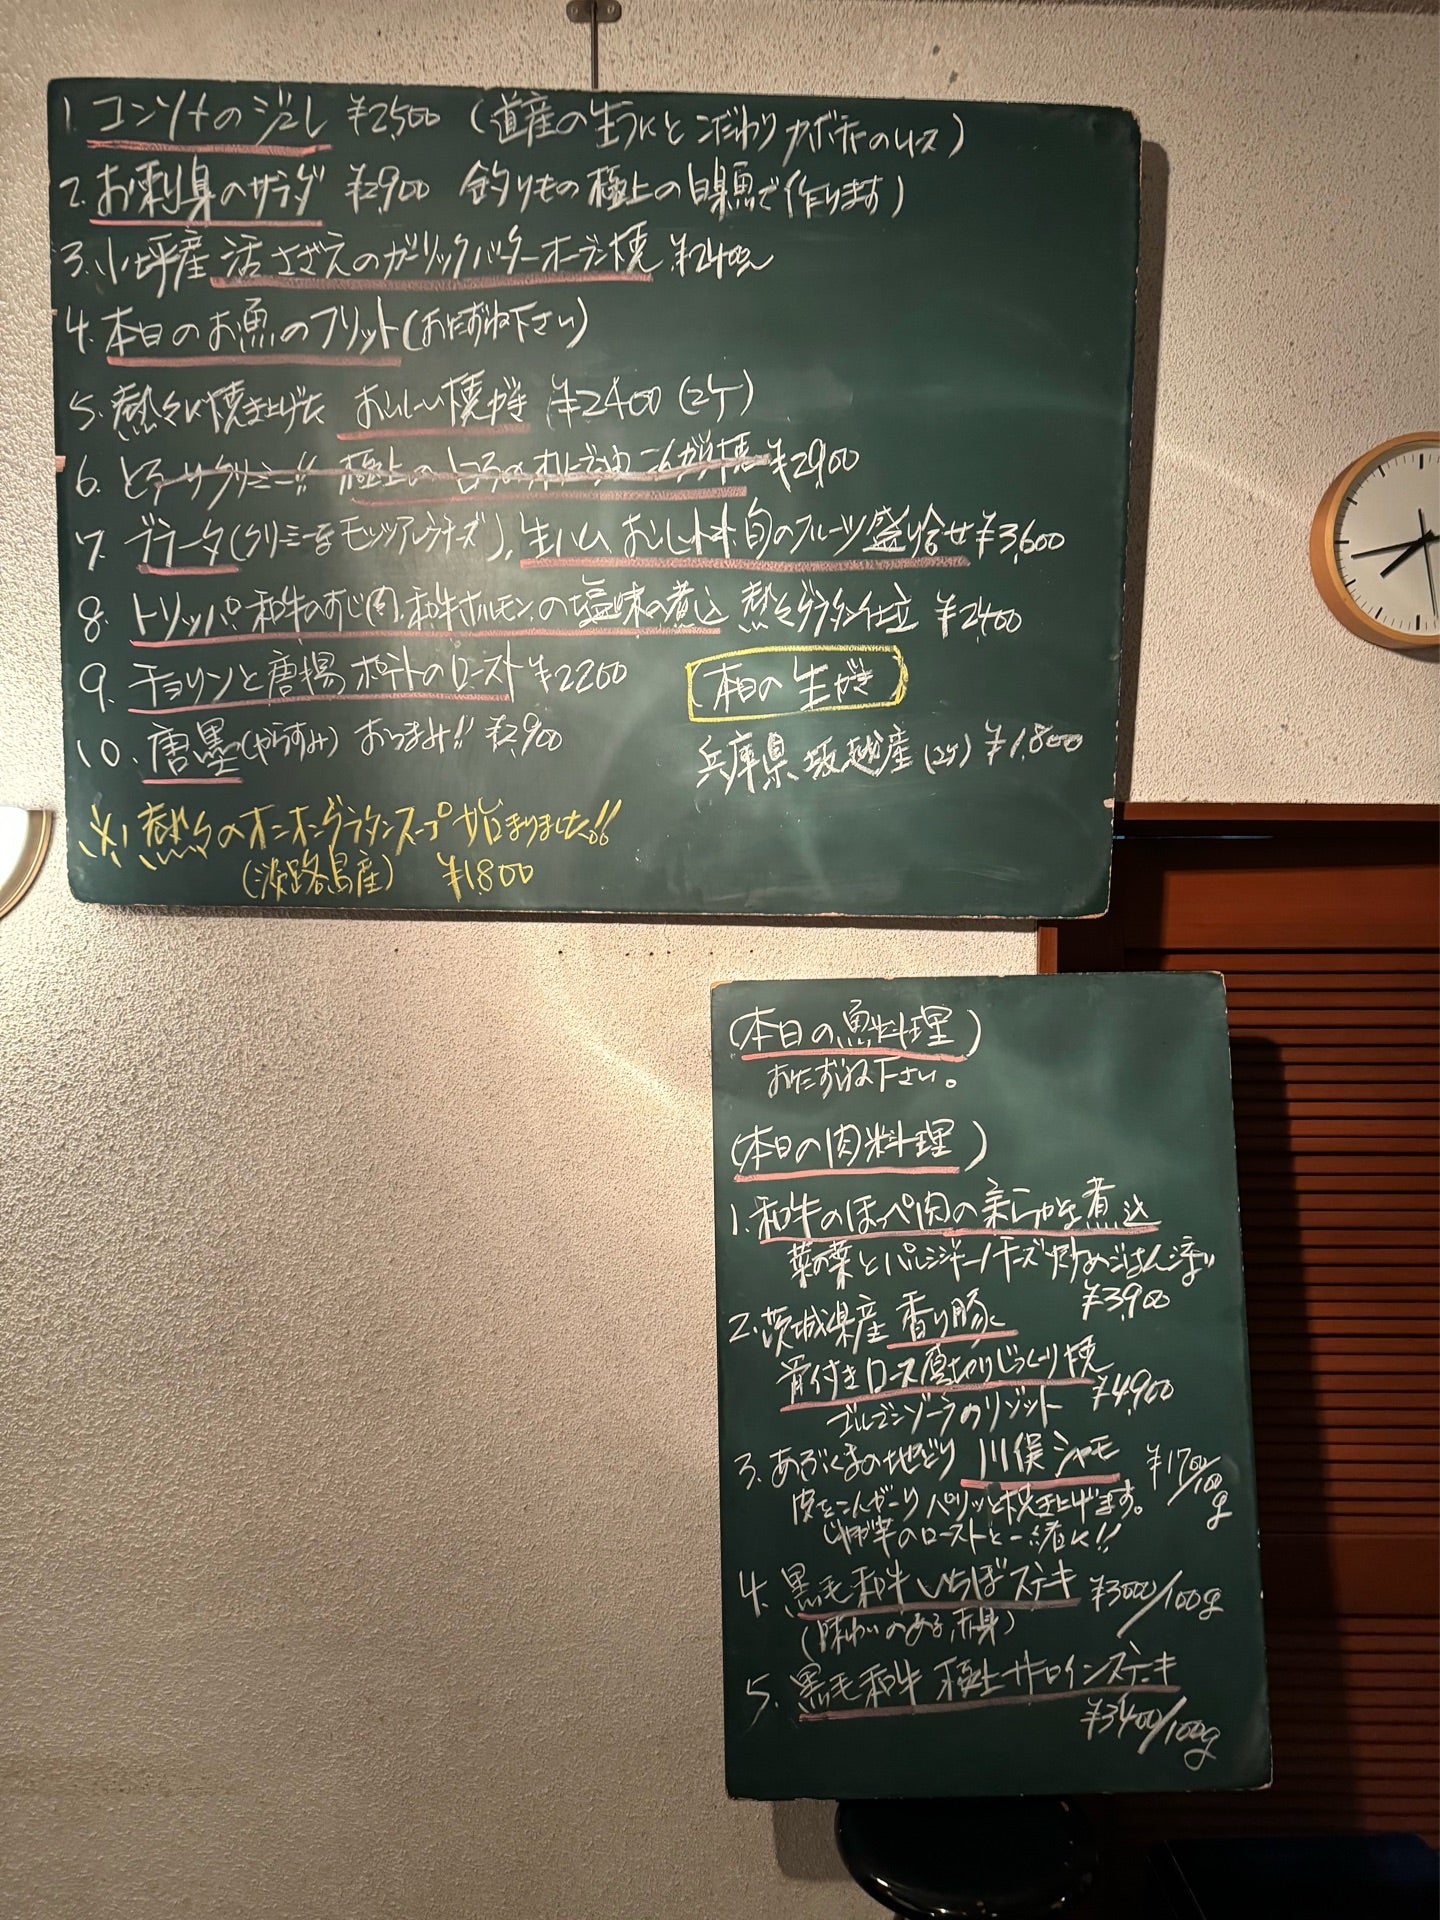 1. コンソメのジュレ ¥2,500 (道産の生うにとこだわりカボチャのムース)
2. お刺身のサラダ ¥2,900 釣りもの極上の白身魚で作ります)
3. 小坪産 活さざえのガーリックバターオーブン焼 ¥2400
4. 本日のお魚のフリット(おたずね下さい)
5. 熱々に焼き上げた おいしい焼がき ¥2400 (2ケ)
6. とろーりクリーミー!! 極上の 焼 ¥2900
7. ブラータ(クリーミーなモッツァレラチーズ), 生ハム, おいしい 旬のフルーツ盛り合せ ¥3,600
8. トリッパ・和牛のすじ肉, 和牛ホルモンの塩味の煮込 熱々グラタン仕立 ¥2400
9. チョリソと唐揚ポテトのロースト ¥2200
10. 唐墨(からすみ) おつまみ!! ¥2,900
(本日の生がき)
兵庫県 坂越産 (2ケ) ¥1,800
※! 熱々のオニオングラタンスープ始まりました!!
(淡路島産) ¥1,800
(本日の魚料理)
おたずね下さい。
(本日の肉料理)
1. 和牛のほっぺ肉の柔らかな煮込
菜の葉とパルミジャーノチーズ炒めごはん添え
¥3,900
2. 茨城県産 香り豚
骨付きロース厚切りじっくり焼
¥4,900
ゴルゴンゾーラのリゾット
3. あぶくまの地どり 川俣シャモ ¥1700/100g
皮をこんがーりパリッと焼き上げます。
じゃが芋のローストと一緒に!!
4. 黒毛和牛 いちぼステーキ ¥3000/100g
(味わいのある, 赤身)
5. 黒毛和牛 極上サーロインステーキ
¥3400/100g